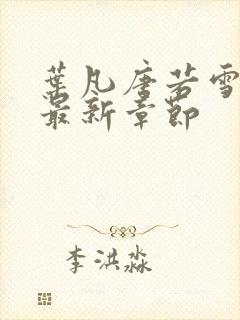 葉凡唐若雪
最新章節
李洪淼